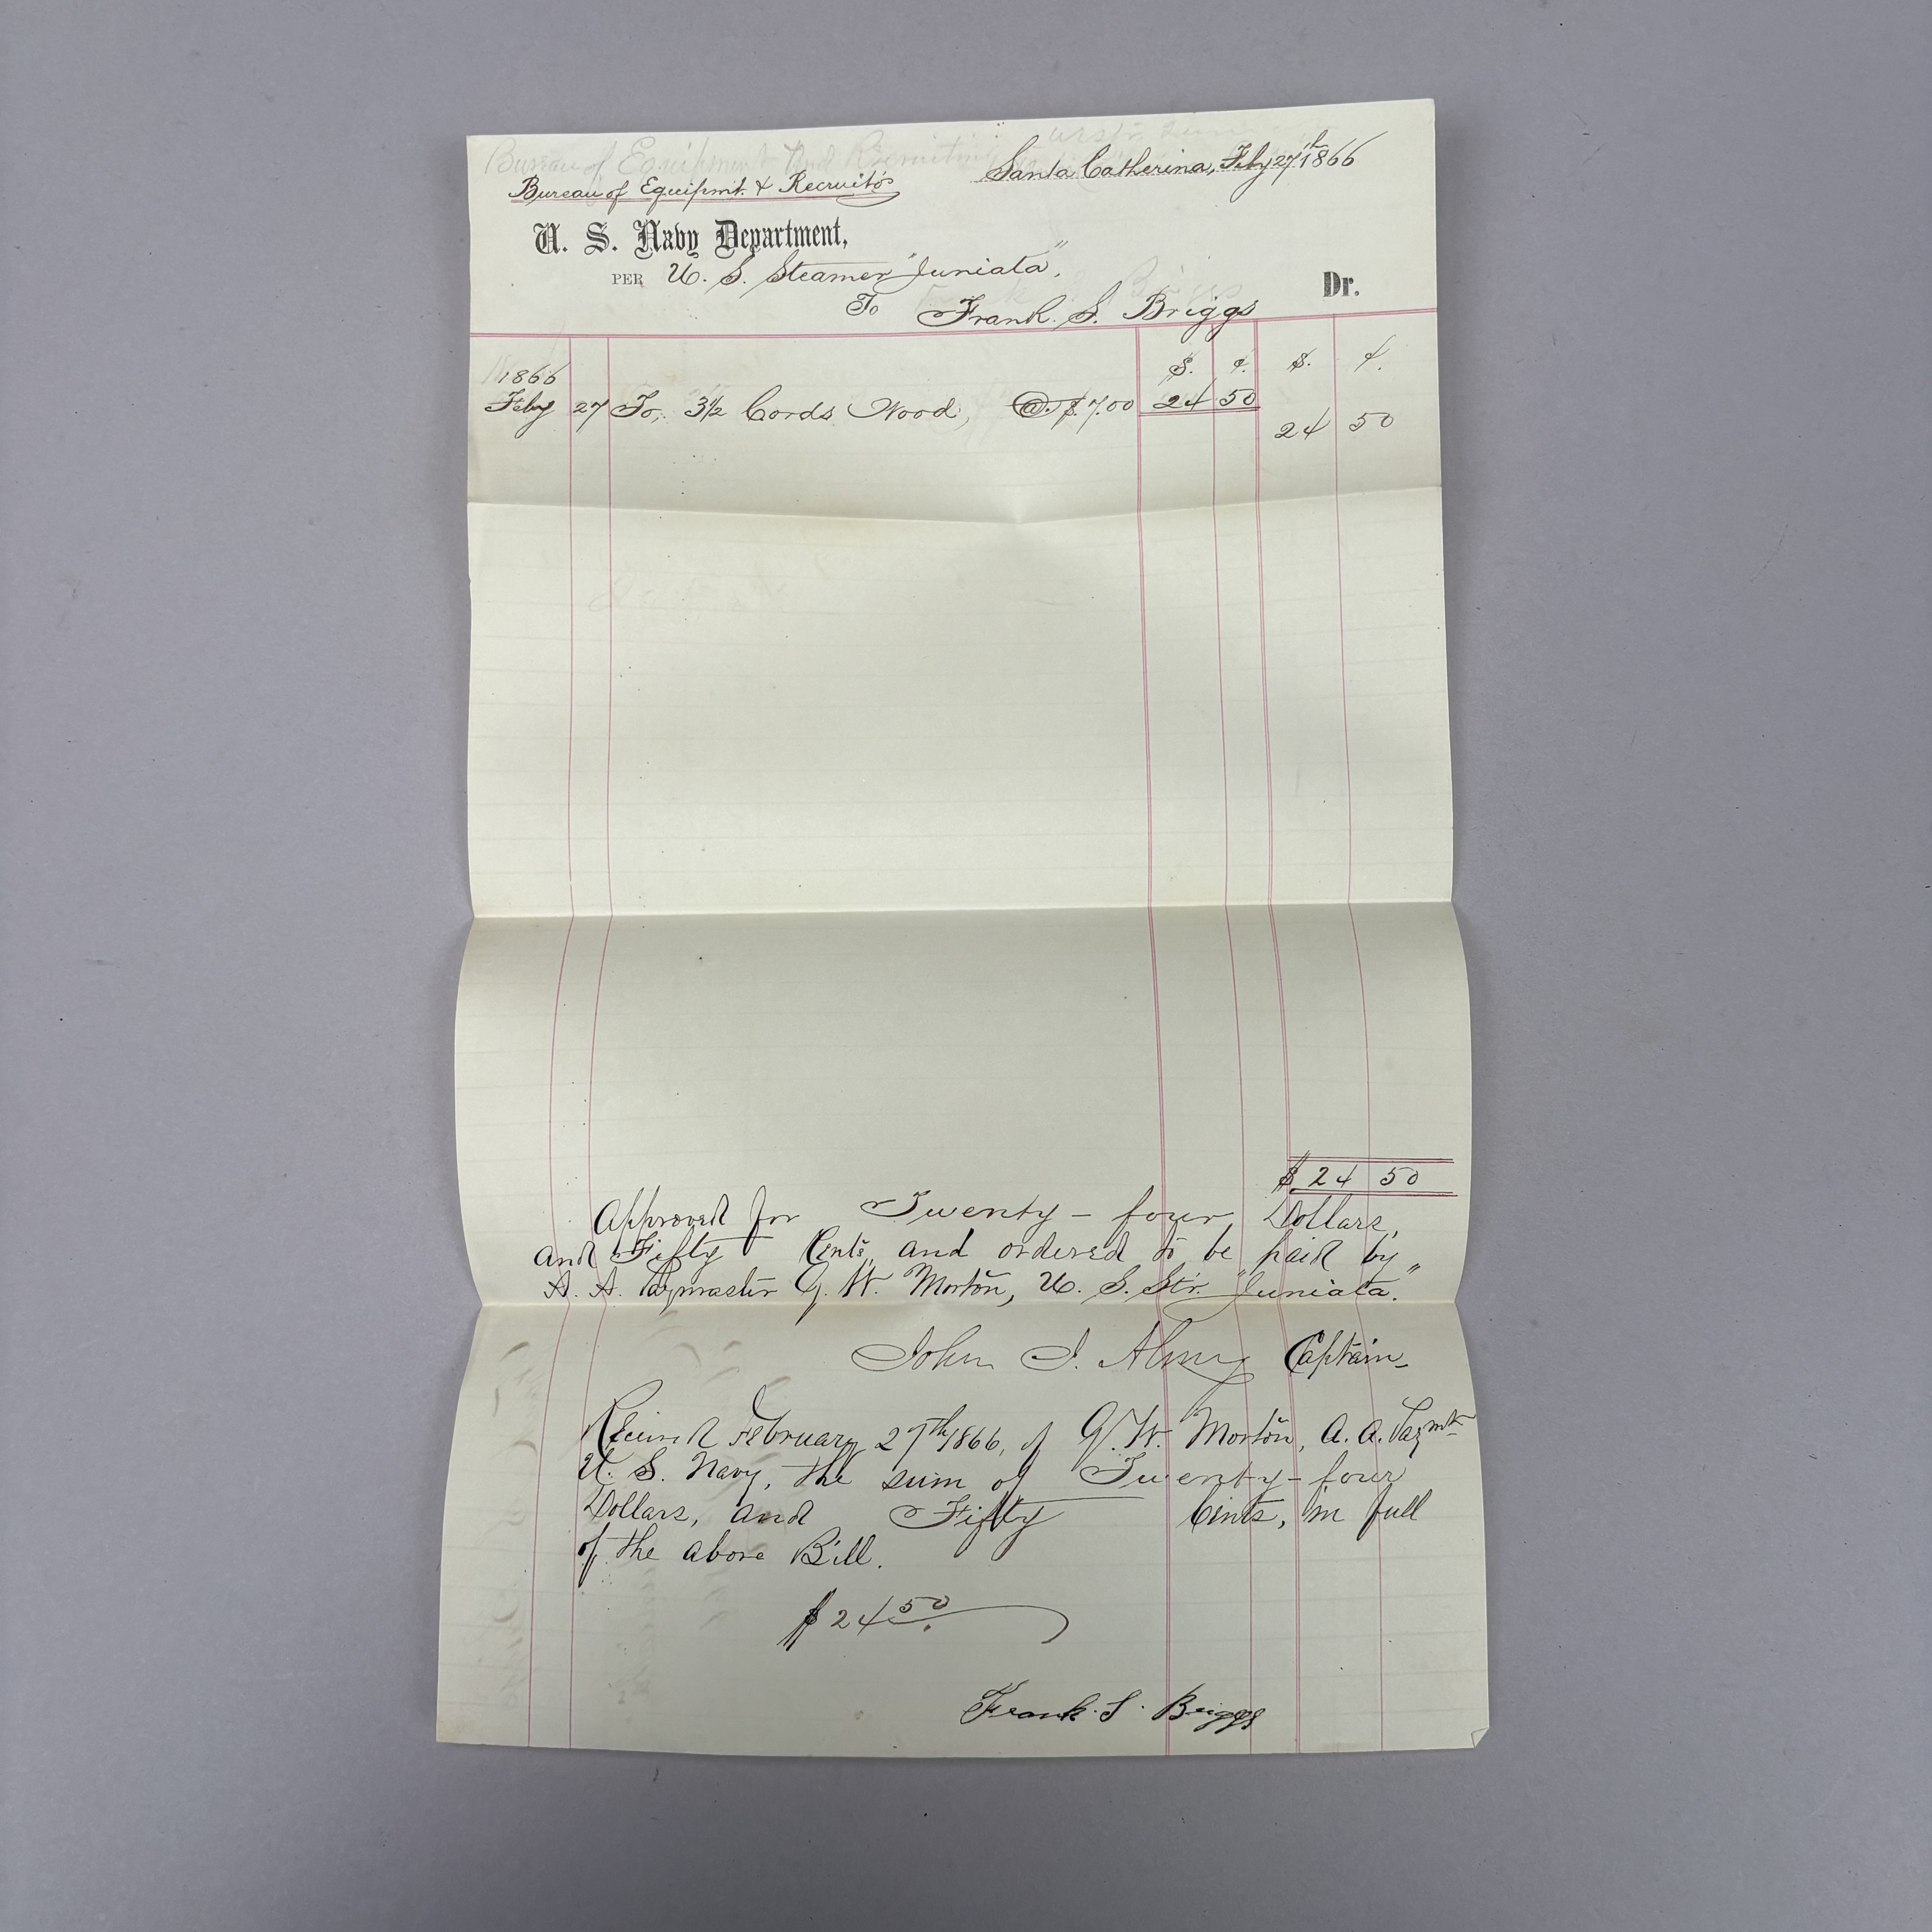 Bureau of Equipment and Recruiting
Santa Catherina, Feby 27th 1866
Bureau of Equipmt. & Recruit'g
U. S. Navy Department,
PER U. S. Steamer "Juniata",
To Frank. S. Briggs Dr.
$. ¢. $. ¢.
1866
Feby 27 To, 3½ Cords Wood, @ $7.00 24 50
24 50
$ 24 50
Approved for Twenty-four Dollars,
and Fifty Cents, and ordered to be paid by
A. A. Paymaster G. W. Morton, U. S. Str. "Juniata."
John J. Almy Captain
Received February 27th 1866, of G. W. Morton, A. A. Paymr
U. S. Navy, the sum of Twenty-four
Dollars, and Fifty Cents, in full
of the above Bill.
$24 50
Frank. S. Briggs